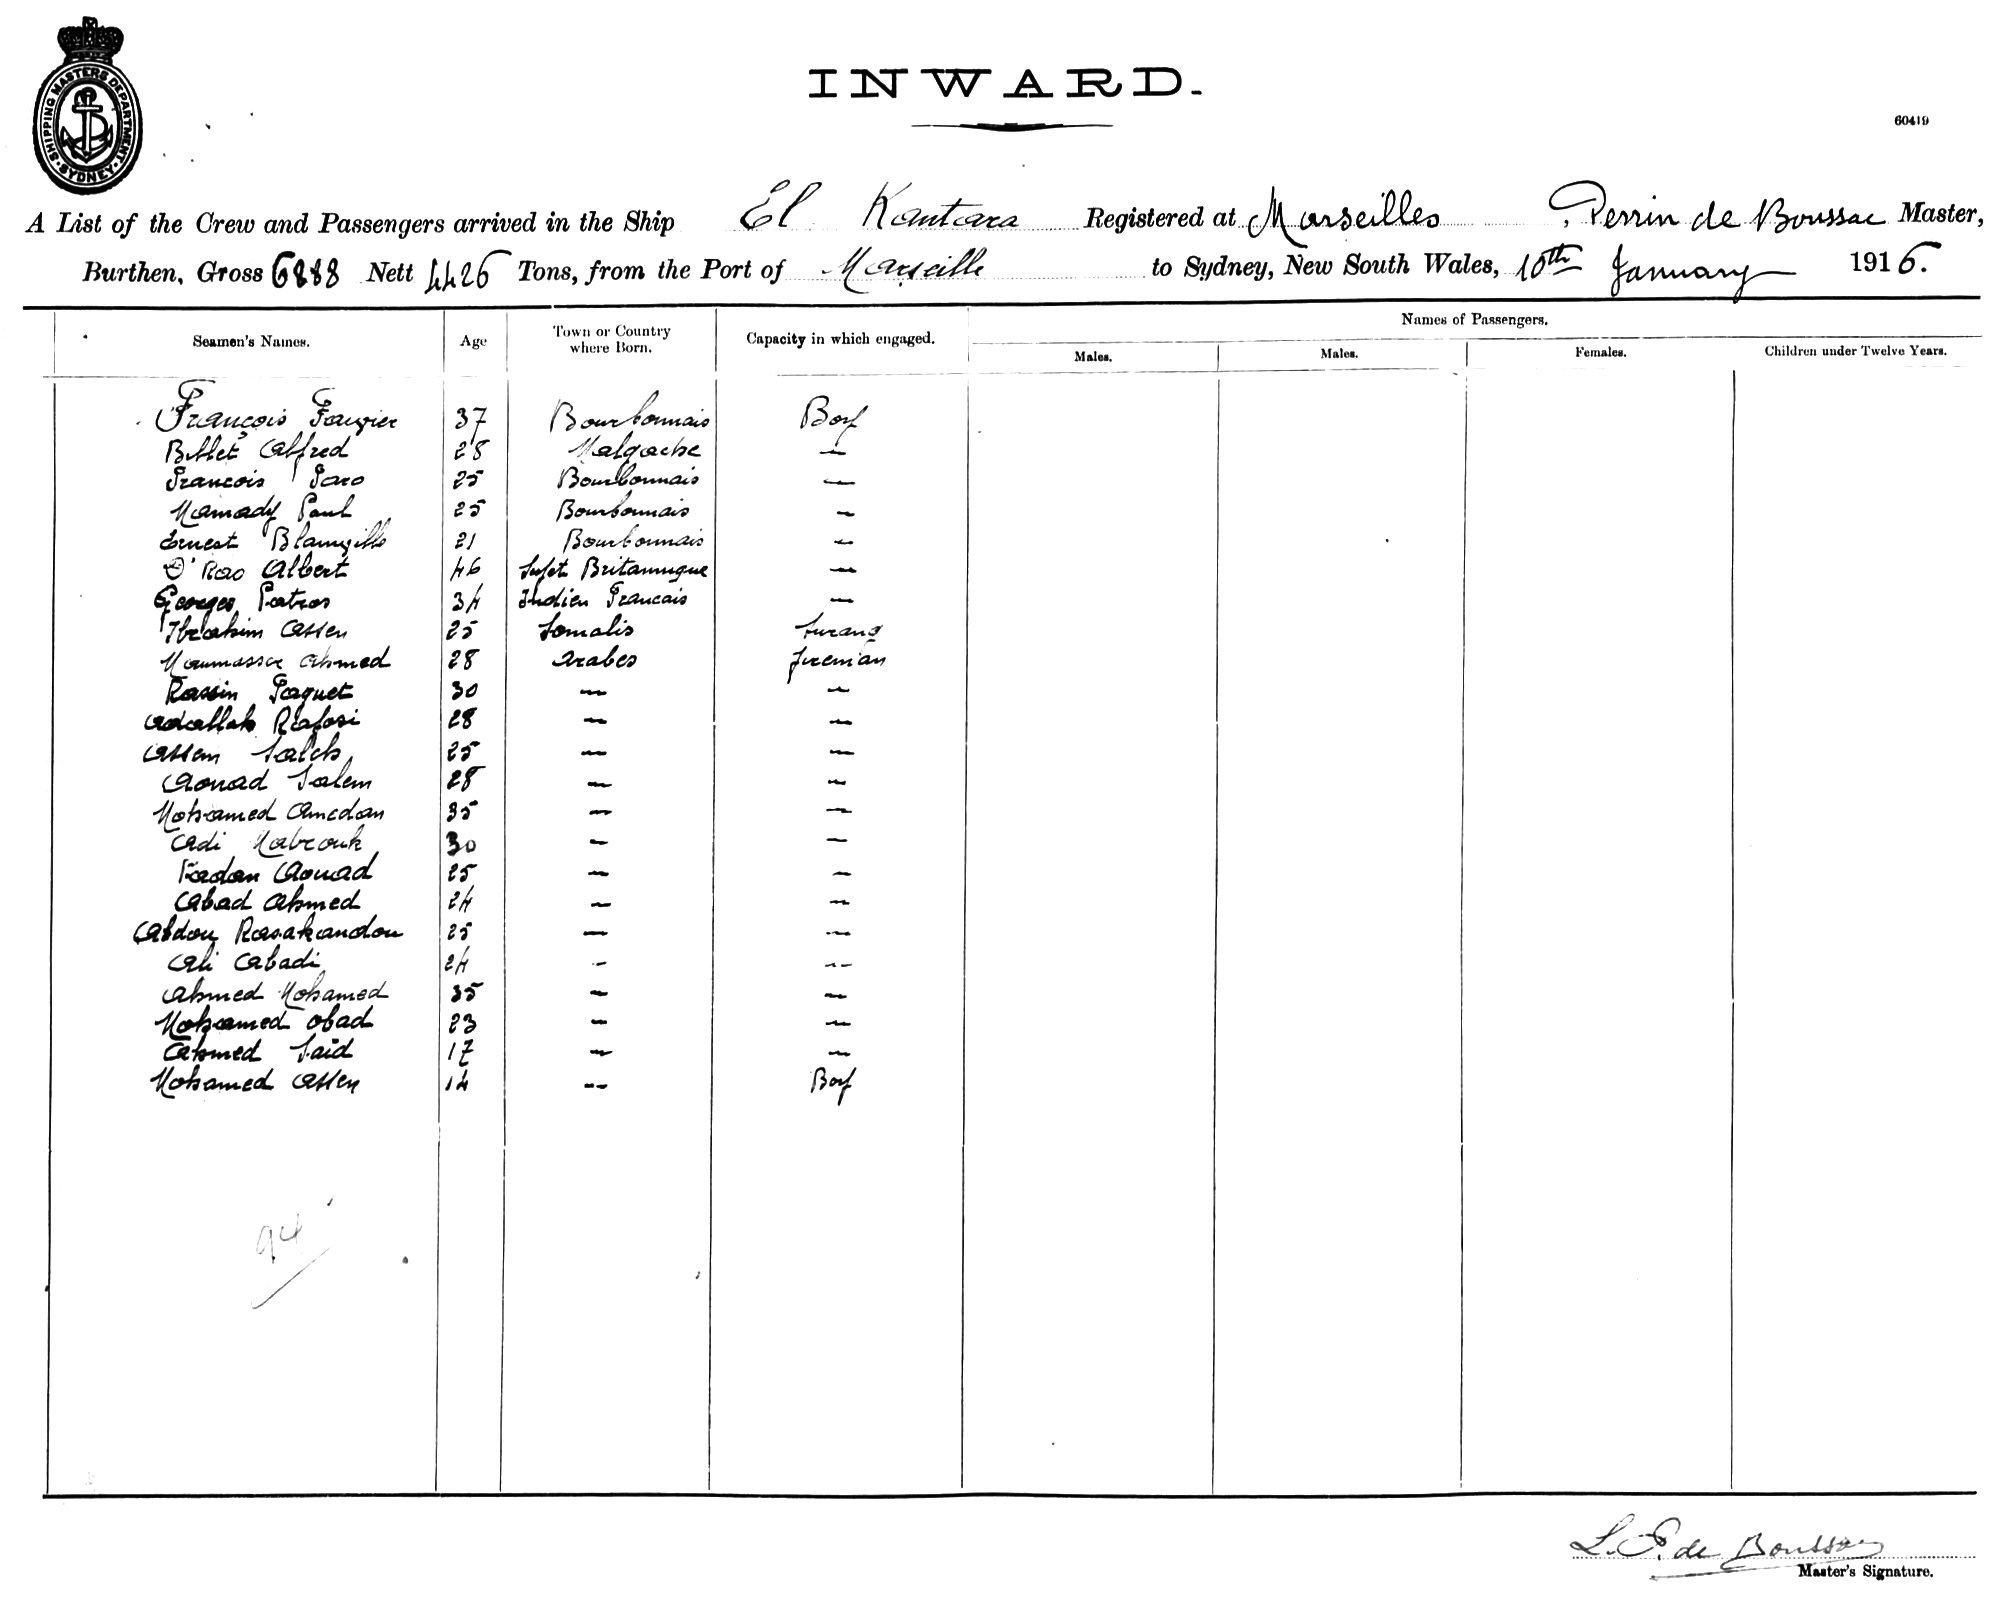 SHIPPING MASTERS DEPARTMENT
SYDNEY
INWARD.
60419
A List of the Crew and Passengers arrived in the Ship El Kantara Registered at Marseilles Perrin de Boussac Master,
Burthen, Gross 6888 Nett 4426 Tons, from the Port of Marseille to Sydney, New South Wales, 10th January 1916.
Seamen's Names. Age Town or Country where Born. Capacity in which engaged. Names of Passengers.
Males. Males. Females. Children under Twelve Years.
François 37 Bourbonnais Boy
Billet Alfred 28 Malgache —
Francois 25 Bourbonnais —
Mamady Paul 25 Bourbonnais —
Ernest 21 Bourbonnais —
D'Rao Albert 46 Sujet Britannique —
Georges Patras 34 Indien Francais —
Ibrahim Assen 25 Somalis
Ahmed 28 Arabes Fireman
Rassin Paquet 30 — —
28 — —
Assem Saleh 25 — —
Aouad Salem 28 — —
Mohamed Amedan 35 — —
Adi Mabrouk 30 — —
Fadan Aouad 25 — —
Abad Ahmed 24 — —
Abdou Rasakandou 25 — —
Ali Abadi 24 - --
Ahmed Mohamed 35 — —
Mohamed Obad 23 — —
Ahmed Saïd 17 — —
Mohamed Assen 14 -- Boy
94
L. P. de Boussac
Master's Signature.